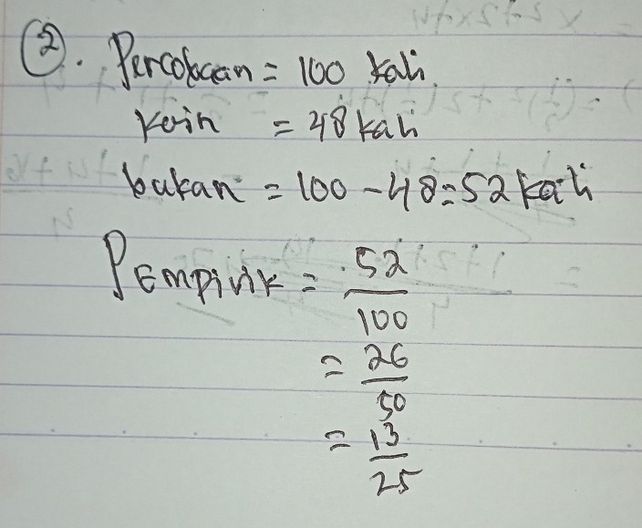 2. Percobaan = 100 kali
Koin = 48 kali
bukan = 100 - 48 = 52 kali
P Empirik = 52/100
= 26/50
= 13/25